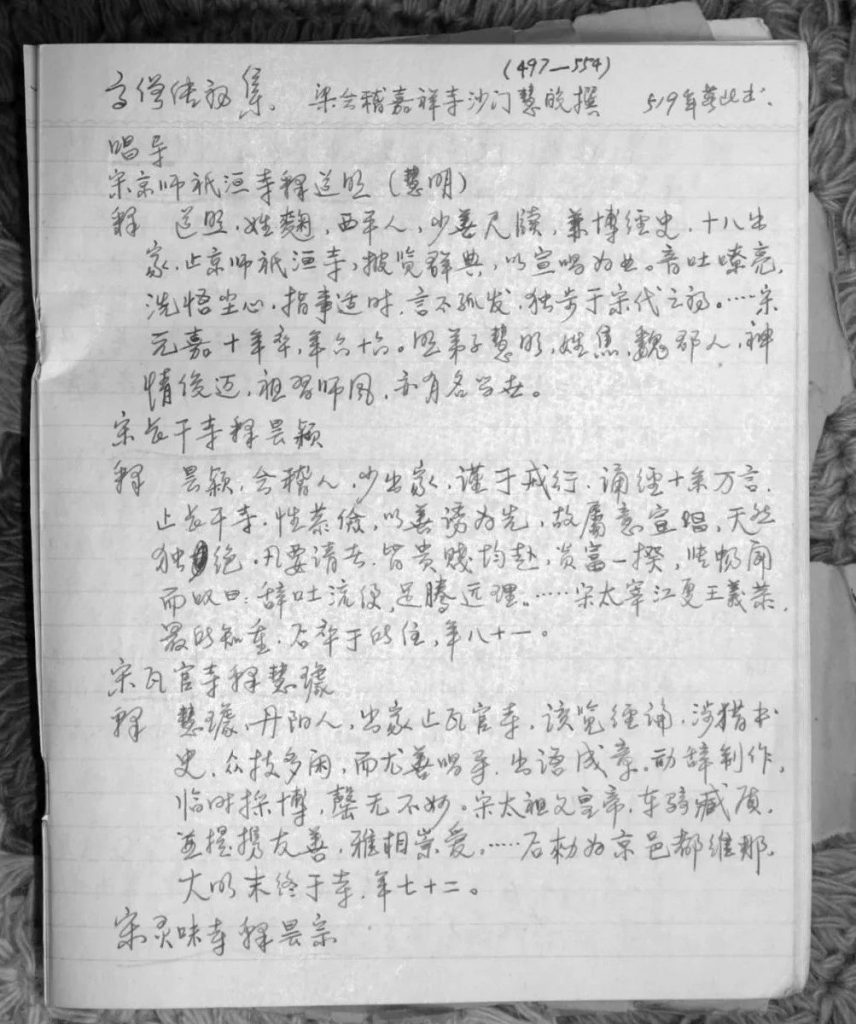 (497—554)
高僧传初集. 梁会稽嘉祥寺沙门慧皎撰 519年著此书.
唱导
宋京师祇洹寺释道照(慧明)
释 道照.姓麴,西平人,少善尺牍,兼博经史.十八出
家.止京师祇洹寺,披览群典,以宣唱为业。音吐嘹亮,
洗悟尘心,指事适时.言不孤发.独步于宋代之初。……宋
元嘉十年卒,年六十六。照弟子慧明,姓焦,魏郡人,神
情俊迈,祖习师风,亦有名当世。
宋长干寺释昙颖
释 昙颖,会稽人,少出家,谨于戒行.诵经十余万言.
止长干寺.性恭俭,以善诱为先,故属意宣唱,天然
独绝.凡要请者.皆贵贱均赴,贫富一揆,张畅闻
而叹曰:辞吐流便,足腾远理。……宋太宰江夏王義恭,
最所知重.后卒于所住,年八十一。
宋瓦官寺释慧璩
释 慧璩,丹阳人,出家止瓦官寺,该览经论,涉猎书
史,众技多闲,而尤善唱导.出语成章,动辞制作,
临时採博,罄无不妙。宋太祖文皇帝,车骑臧质,
並提携友善,雅相崇爱,……后勅为京邑都维那,
大明末终于寺.年七十二。
宋灵味寺释昙宗